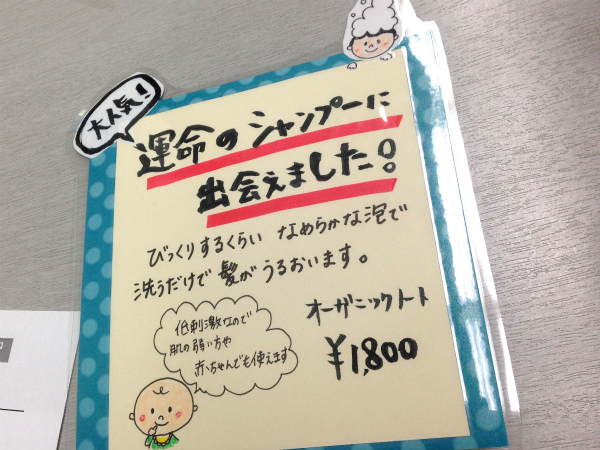 大人気！
運命のシャンプーに
出会えました！
びっくりするくらい なめらかな泡で
洗うだけで髪がうるおいます。
低刺激なので
肌の弱い方や
赤ちゃんでも使えます
オーガニックノート
¥1,800